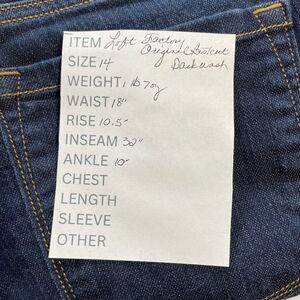 ITEM Loft Factory
Original Bootcut
SIZE 14 Darkwash
WEIGHT 1 lb 7oz
WAIST 18"
RISE 10.5"
INSEAM 32"
ANKLE 10"
CHEST
LENGTH
SLEEVE
OTHER